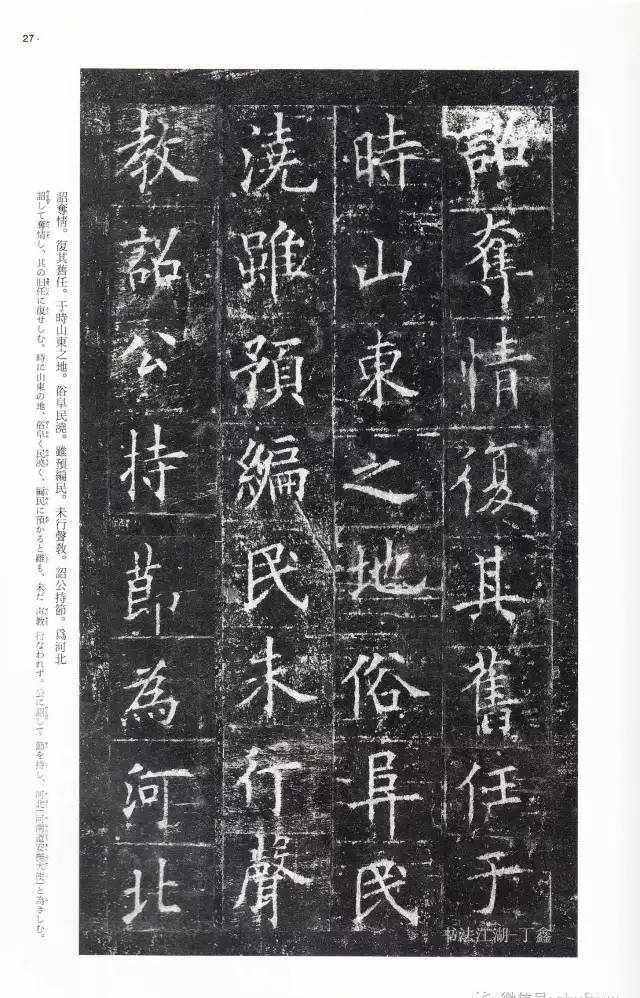 27·
詔奪情復其舊任于
時山東之地俗阜民
澆雖預編民未行聲
教詔公持節為河北
詔奪情。復其舊任。于時山東之地。俗阜民澆。雖預編民。未行聲教。詔公持節。爲河北
詔して奪情し、其の旧任に復せしむ。時に山東の地、俗阜く民澆く、編民に預かると雖も、未だ声教行なわれず。公に詔して節を持し、河北
书法江湖-丁鑫